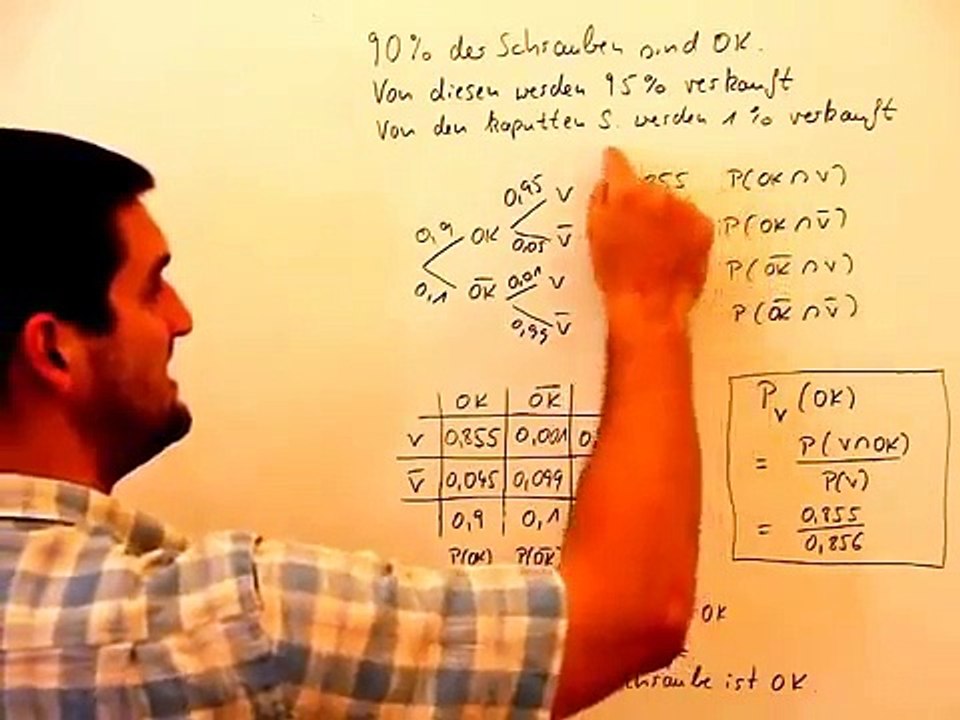 90% der Schrauben sind OK.
Von diesen werden 95% verkauft
Von den kaputten S. werden 1% verkauft
0,95 V 855 P(OK ∩ V)
0,9 OK 0,05 V̅ P(OK ∩ V̅)
0,1 O̅K̅ 0,01 V P(O̅K̅ ∩ V)
0,99 V̅ P(O̅K̅ ∩ V̅)
OK O̅K̅
V 0,855 0,001 0,
V̅ 0,045 0,099
0,9 0,1
P(OK) P(O̅K̅)
P_V (OK)
= P(V∩OK) / P(V)
= 0,855 / 0,856
OK
ist OK.